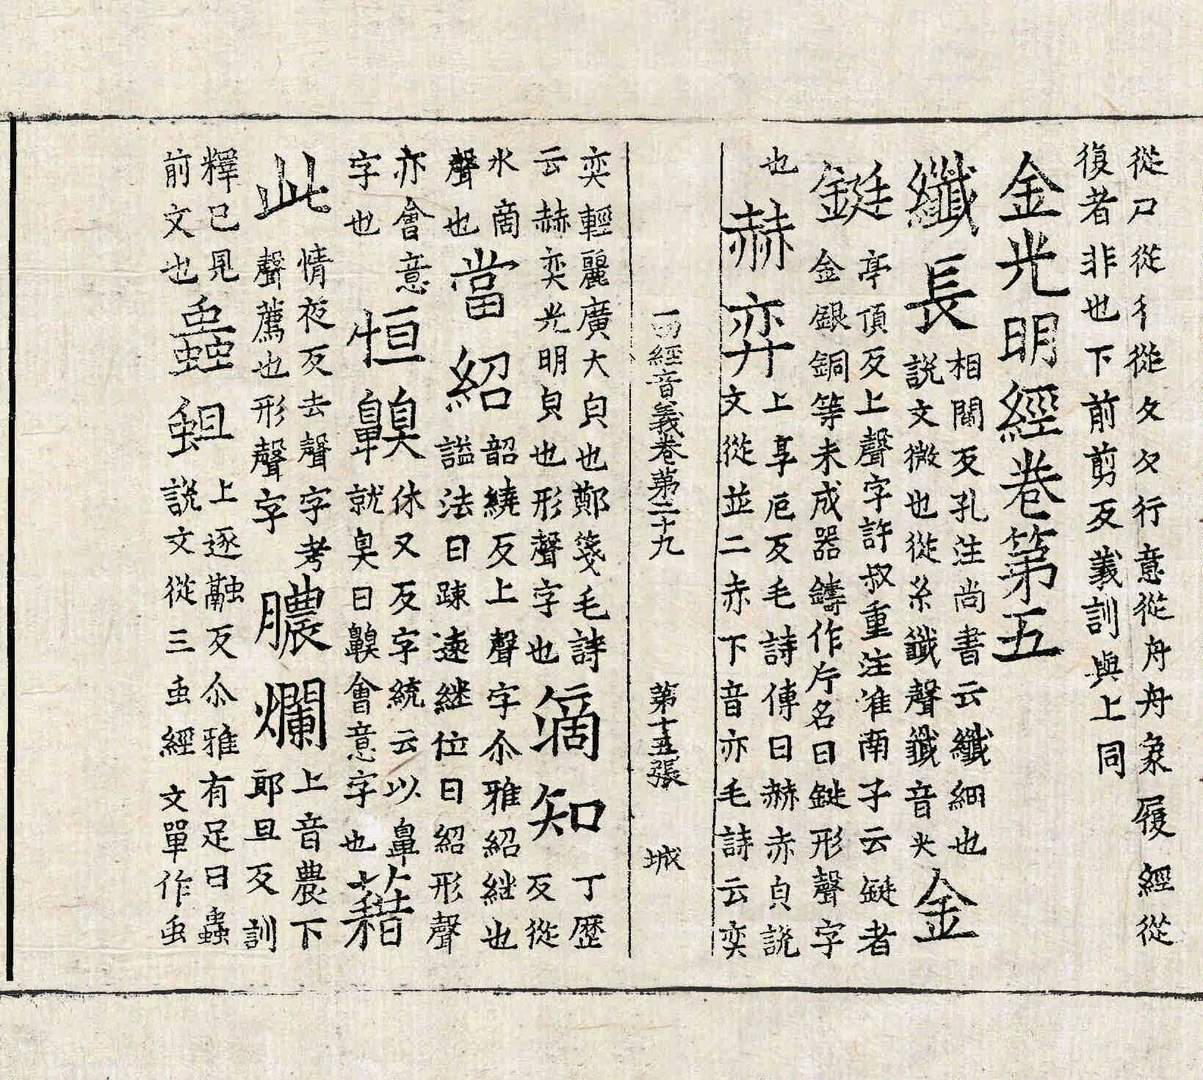 從尸從彳從夂夂行意從舟舟象履經從
復者非也下前剪反義訓與上同
金光明經卷第五
纖長
相閻反孔注尚書云纖細也
說文微也從糸韱聲韱音尖
金
鋌
亭頂反上聲字許叔重注准南子云鋌者
金銀銅等未成器鑄作片名曰鋌形聲字
也
赫弈
上享厄反毛詩傳曰赫赤皃說
文從並二赤下音亦毛詩云奕
一切經音義卷第二十九 第十五張 城
奕輕麗廣大皃也鄭箋毛詩
云赫奕光明皃也形聲字也
滴知
丁歷
反從
水啇
聲也
當紹
韶繞反上聲字尒雅紹継也
謚法曰踈遠継位曰紹形聲
亦會意
字也
恒齅
休又反字統云以鼻
就臭曰齅會意字也
藉
此
情夜反去聲字考
聲薦也形聲字
膿爛
上音農下
郎旦反訓
釋已見
前文也
蟲蛆
上逐融反尒雅有足曰蟲
說文從三虫經文單作虫